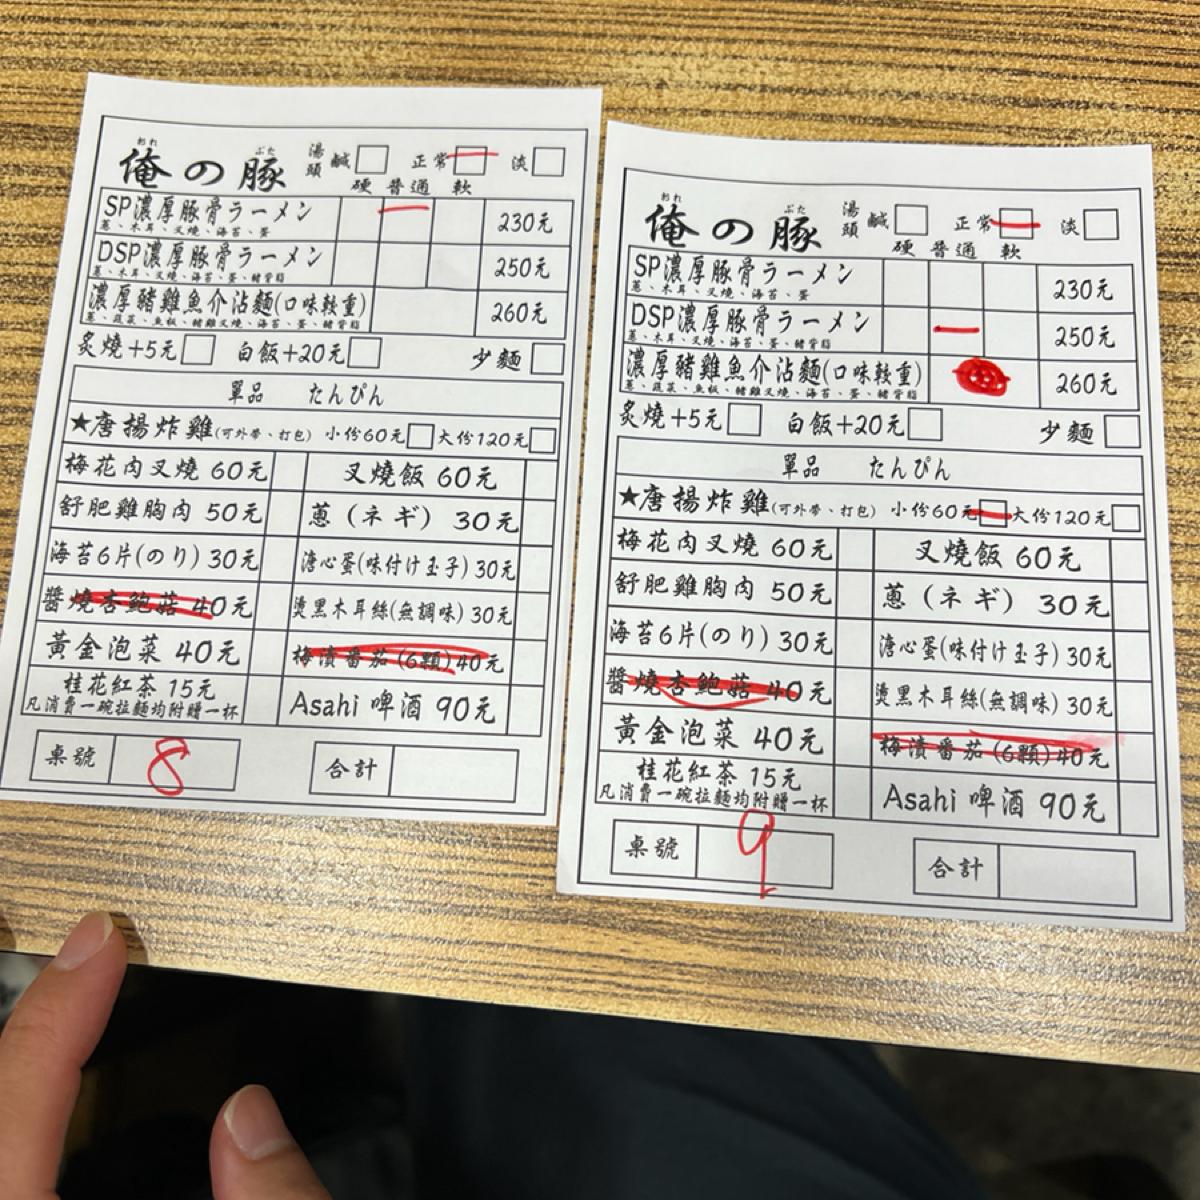 おれ ぶた
俺の豚 湯頭 鹹 正常 淡
硬 普通 軟
SP濃厚豚骨ラーメン 230元
蔥、木耳、叉燒、海苔、蛋
DSP濃厚豚骨ラーメン 250元
蔥、木耳、叉燒、海苔、蛋、豬背脂
濃厚豬雞魚介沾麵(口味較重) 260元
蔥、蔬菜、魚板、豬雞叉燒、海苔、蛋、豬背脂
炙燒+5元 白飯+20元 少麵
單品 たんぴん
★唐揚炸雞(可外帶、打包) 小份60元 大份120元
梅花肉叉燒 60元 叉燒飯 60元
舒肥雞胸肉 50元 蔥(ネギ) 30元
海苔6片(のり) 30元 溏心蛋(味付け玉子) 30元
醬燒杏鮑菇 40元 燙黑木耳絲(無調味) 30元
黃金泡菜 40元 梅漬番茄(6顆) 40元
桂花紅茶 15元 Asahi 啤酒 90元
凡消費一碗拉麵均附贈一杯
桌號 8 合計
おれ ぶた
俺の豚 湯頭 鹹 正常 淡
硬 普通 軟
SP濃厚豚骨ラーメン 230元
蔥、木耳、叉燒、海苔、蛋
DSP濃厚豚骨ラーメン 250元
蔥、木耳、叉燒、海苔、蛋、豬背脂
濃厚豬雞魚介沾麵(口味較重) 260元
蔥、蔬菜、魚板、豬雞叉燒、海苔、蛋、豬背脂
炙燒+5元 白飯+20元 少麵
單品 たんぴん
★唐揚炸雞(可外帶、打包) 小份60元 大份120元
梅花肉叉燒 60元 叉燒飯 60元
舒肥雞胸肉 50元 蔥(ネギ) 30元
海苔6片(のり) 30元 溏心蛋(味付け玉子) 30元
醬燒杏鮑菇 40元 燙黑木耳絲(無調味) 30元
黃金泡菜 40元 梅漬番茄(6顆) 40元
桂花紅茶 15元 Asahi 啤酒 90元
凡消費一碗拉麵均附贈一杯
桌號 9 合計